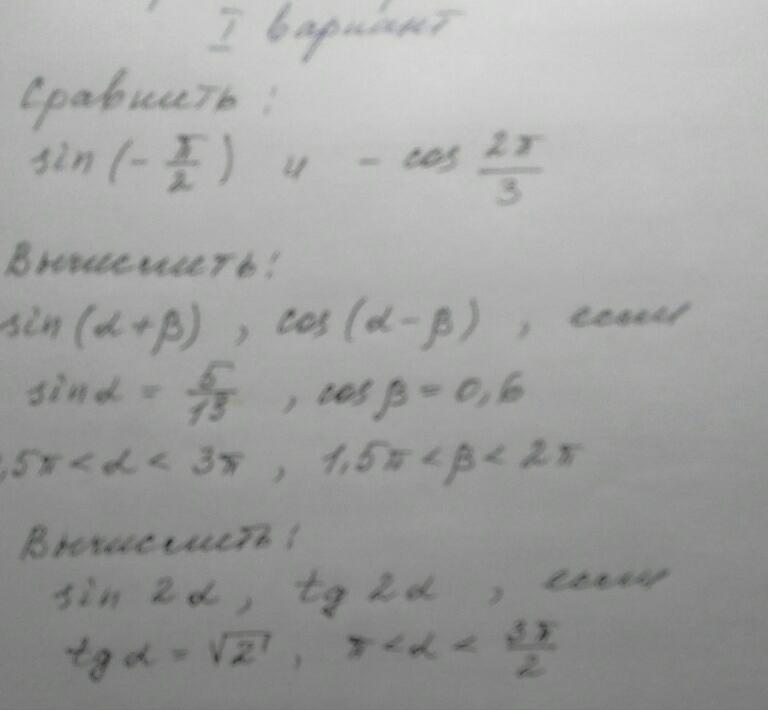 I вариант
Сравнить:
sin(-π/2) и -cos 2π/3
Вычислить:
sin(α+β), cos(α-β), если
sinα = 5/13, cosβ = 0,6
,5π<α< 3π, 1,5π<β< 2π
Вычислить:
sin 2α, tg 2α, если
tgα = √2, π<α< 3π/2